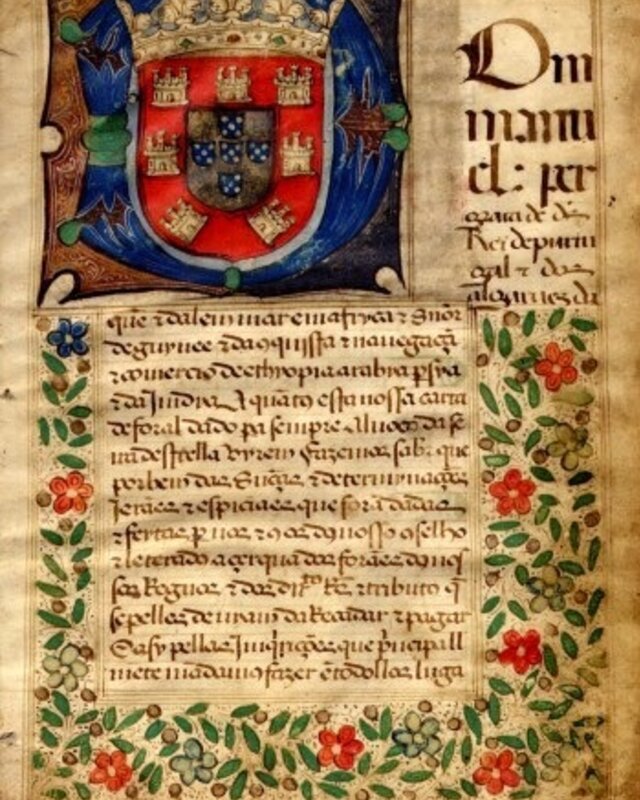 Dm
manu
el: per
graça de ds
Rei de purtu
gal & dos
algarues da
quē & dalem mar em afryca & Snor
de guynee & da cōquista & nauegaçā
& comercio de ethiopia arabia psya
& da India A quāto esta nossa carta
de foral dado pa sempre
ra destrella Byrem fazemos saber que
por bem das Snças & determinações
geraes & espiciaes que forā dadas
& fectas per nos & cōos do nosso cōselho
& leterados açerqua dos foraes de nos
sos Regnos & dos drtos Rs & tributos q̄
se pellos deuiam da Recadar & pagar
& asy pellas Inqriçoes que prinçipall
mete mādamos fazer ē todollos luga